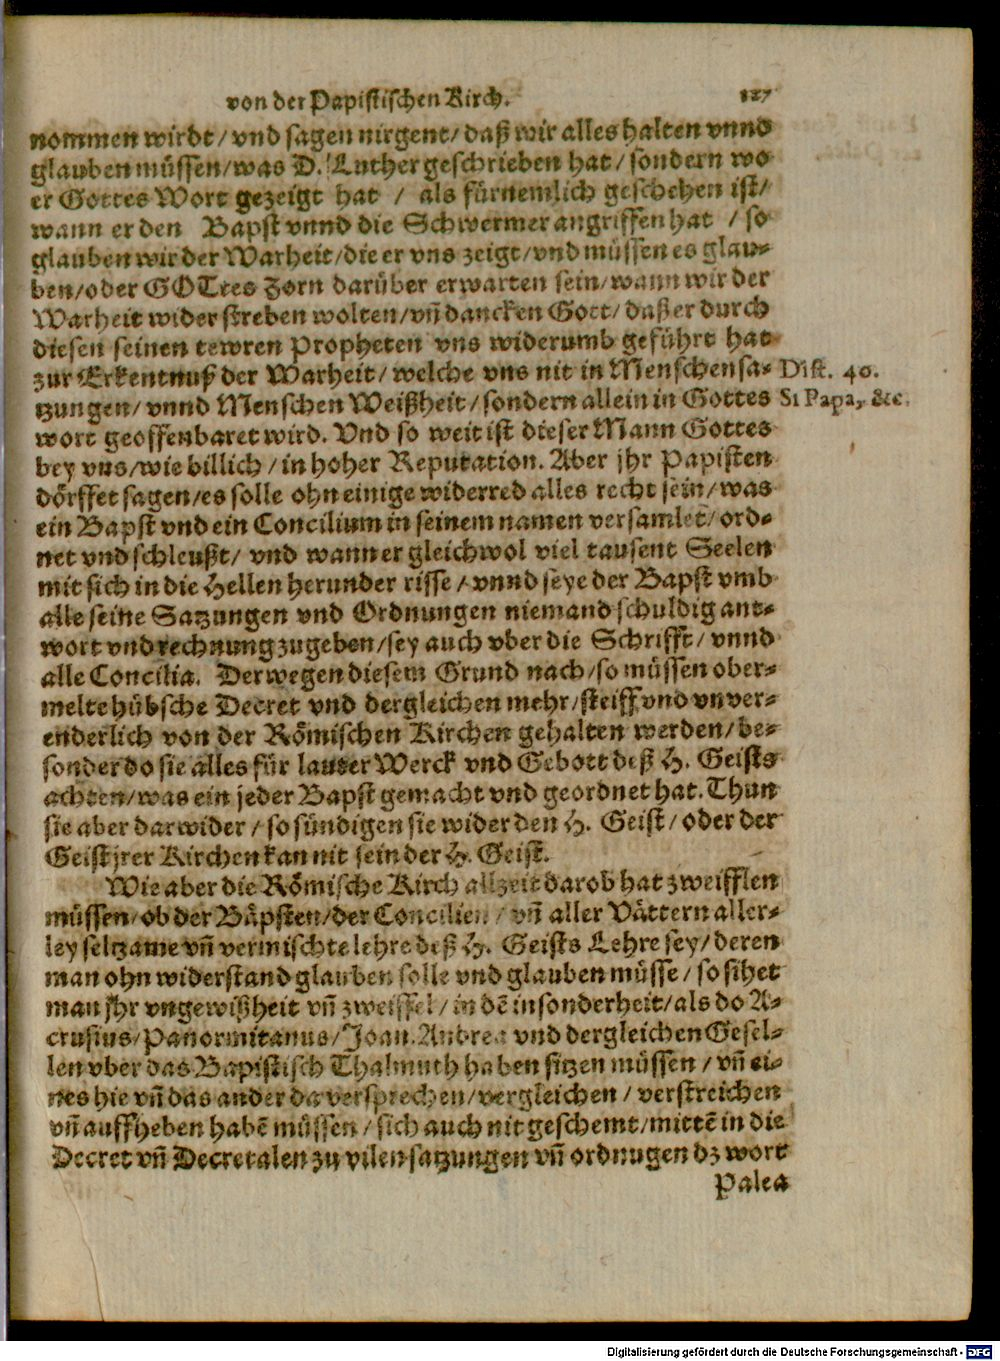 von der Papistischen Kirch. 127
nommen wirdt / vnd sagen nirgent / daß wir alles halten vnnd
glauben müssen / was D. Luther geschrieben hat / sondern wo
er Gottes Wort gezeigt hat / als fürnemlich geschehen ist /
wann er den Bapst vnnd die Schwermer angriffen hat / so
glauben wir der Warheit / die er vns zeigt / vnd müssen es glau-
ben / oder GOTtes Zorn darüber erwarten sein / wann wir der
Warheit widerstreben wolten / vñ dancken Gott / daß er durch
diesen seinen tewren Propheten vns widerumb geführt hat
zur Erkentnuß der Warheit / welche vns nit in Menschensa- Dist. 40.
tzungen / vnnd Menschen Weißheit / sondern allein in Gottes Si Papa, &c.
wort geoffenbaret wird. Vnd so weit ist dieser Mann Gottes
bey vns / wie billich / in hoher Reputation. Aber jhr Papisten
dörffet sagen / es solle ohn einige widerred alles recht sein / was
ein Bapst vnd ein Concilium in seinem namen versamlet / ord-
net vnd schleußt / vnd wann er gleichwol viel tausent Seelen
mit sich in die Hellen herunder risse / vnnd seye der Bapst vmb
alle seine Satzungen vnd Ordnungen niemand schuldig ant-
wort vnd rechnung zugeben / sey auch vber die Schrifft / vnnd
alle Concilia. Derwegen diesem Grund nach / so müssen ober-
melte hübsche Decret vnd dergleichen mehr / steiff vnd vnver-
enderlich von der Römischen Kirchen gehalten werden / be-
sonder do sie alles für lauter Werck vnd Gebott deß H. Geists
achten / was ein jeder Bapst gemacht vnd geordnet hat. Thun
sie aber darwider / so sündigen sie wider den H. Geist / oder der
Geist jrer Kirchen kan nit sein der H. Geist.
Wie aber die Römische Kirch allzeit darob hat zweifflen
müssen / ob der Bäpsten / der Concilien / vñ aller Vättern aller-
ley seltzame vñ vermischte lehre deß H. Geists Lehre sey / deren
man ohn widerstand glauben solle vnd glauben müsse / so sihet
man jhr vngewißheit vñ zweiffel / in dē insonderheit / als do A-
crusius / Panormitanus / Joan. Andrea vnd dergleichen Gesel-
len vber das Bapistisch Thalmuth haben sitzen müssen / vñ ei-
nes hie vñ das ander da versprechen / vergleichen / verstreichen
vñ auffheben habē müssen / sich auch nit geschemt / mittē in die
Decret vñ Decretalen zu vilen satzungen vñ ordnugen dz wort
Palea
Digitalisierung gefördert durch die Deutsche Forschungsgemeinschaft - DFG